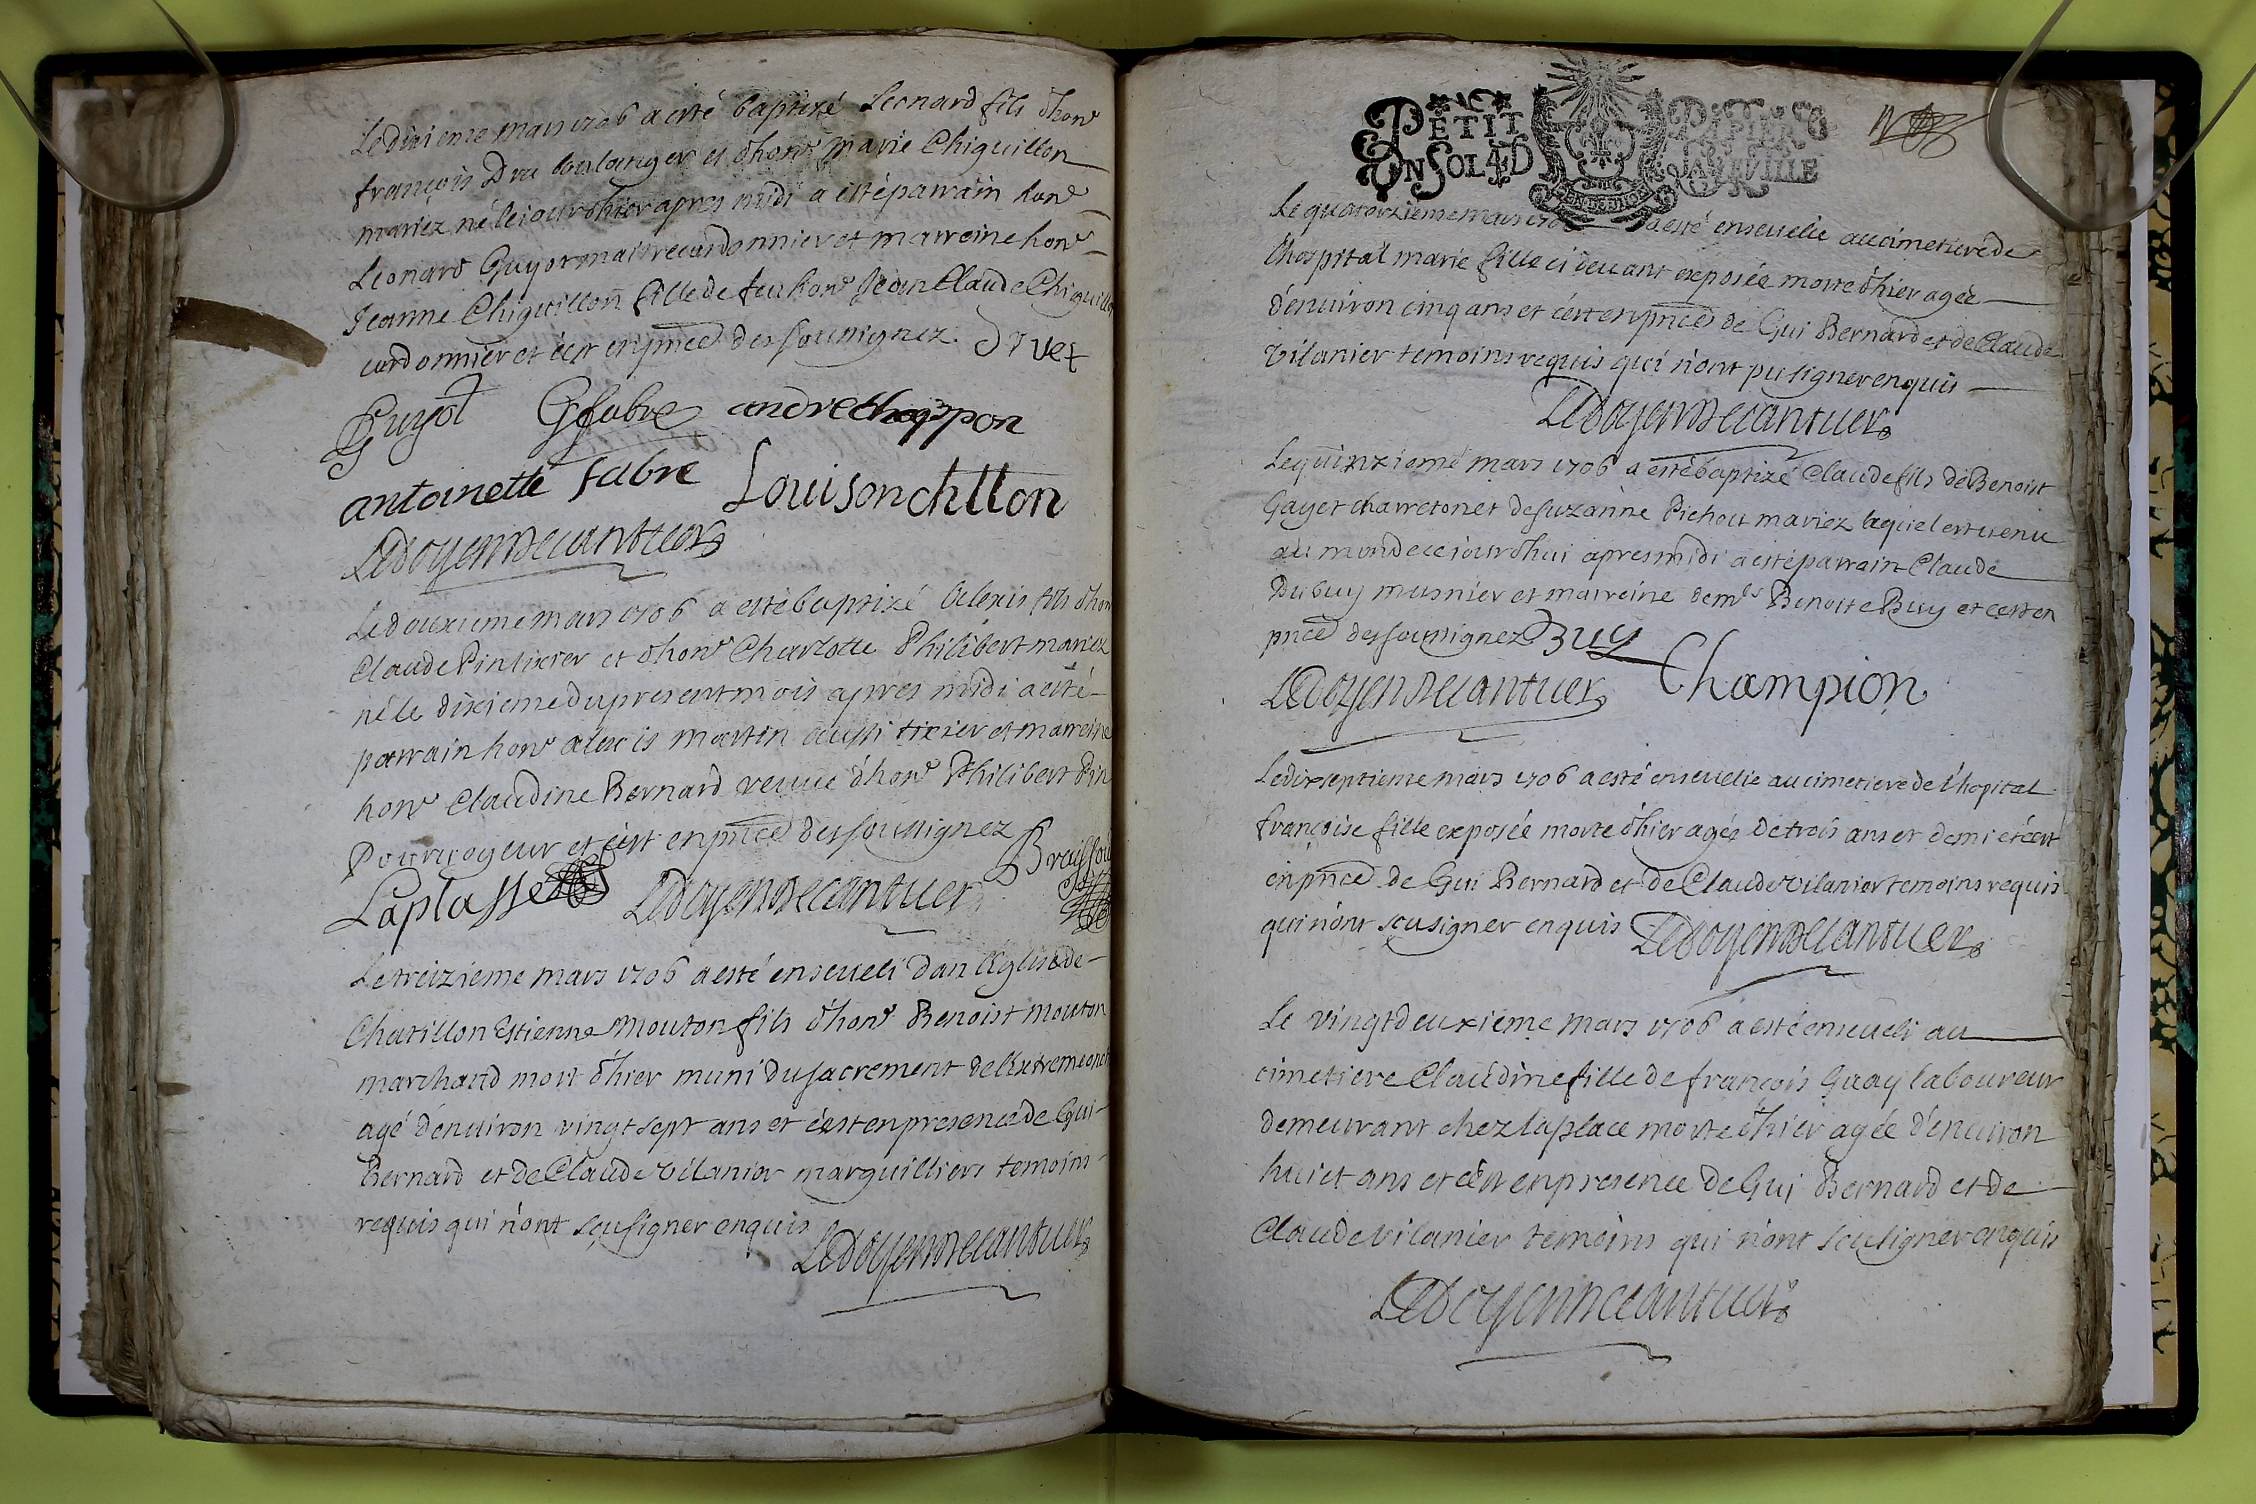 Le dixieme mars 1706 a esté baptizé Leonard fils d'hon^e
françois Dru boulanger et d'hon^e marie Chiquillon
mariez né le jour d'hier apres midi a esté parrain hon^e
Leonard Guyot maitre cordonnier et marreine hon^e
Jeanne Chiquillon fille de feu hon^e Jean Claude Chiquillon
cordonnier et c'est en pnce des soussignez Druet
Guyot Gfabre andre chappon
antoinette fabre Louison chllon
Ledoyen De cantuer
Le douxieme mars 1706 a esté baptizé Alexis fils d'hon
Claude Pin tixier et d'hon^e Charlotte Philibert mariez
né le dixieme du present mois apres midi a esté
parrain hon^e alexis martin aussi tixier et marreine
hon^e Claudine Bernard veuve d'hon^e Philibert Pin
Pourvoyeur et c'est en pnce des soussignez
Laplasse Ledoyen De cantuer
Le treizieme mars 1706 a esté enseveli dan l'Eglise de
Chatillon Estienne Mouton fils d'hon^e Benoist mouton
marchand mort d'hier muni du sacrement de l'Extremeonct
agé d'environ vingt sept ans et c'est en presence de Gui
Bernard et de Claude Vilanier marguilliers temoins
requis qui n'ont sceu signer enquis
Ledoyen De cantuer
PETIT PAPIER
UN SOL 4 D LA FEUILLE
Le quatorzieme mars 170 a esté ensevelie au cimetiere de
l'hospital marie fille ci devant exposée morte d'hier agée
d'environ cinq ans et c'est en pnce de Gui Bernard et de Claude
Vilanier temoins requis qui n'ont pu signer enquis
Ledoyen De cantuer
Le quinzieme mars 1706 a esté baptizé Claude fils de Benoist
Gayet charreton et de Suzanne Pichou mariez lequel est venu
au monde ce jourd'hui apres midi a esté parrain Claude
Dubuy musnier et marreine dem^le Benoite Buy et c'est en
pnce des soussignez Buy
Ledoyen De cantuer Champion
Le dixseptieme mars 1706 a esté ensevelie au cimetiere de l'hopital
françoise fille exposée morte d'hier agée de trois ans et demi et c'est
en pnce de Gui Bernard et de Claude Vilanier temoins requis
qui n'ont sceu signer enquis Ledoyen De cantuer
Le vingtdeuxieme mars 1706 a esté enseveli au
cimetiere Claudine fille de françois Guay laboureur
demeurant chez laplace morte d'hier agée d'environ
huict ans et c'est en presence de Gui Bernard et de
Claude Vilanier temoins qui n'ont sceu signer enquis
Ledoyen De cantuer